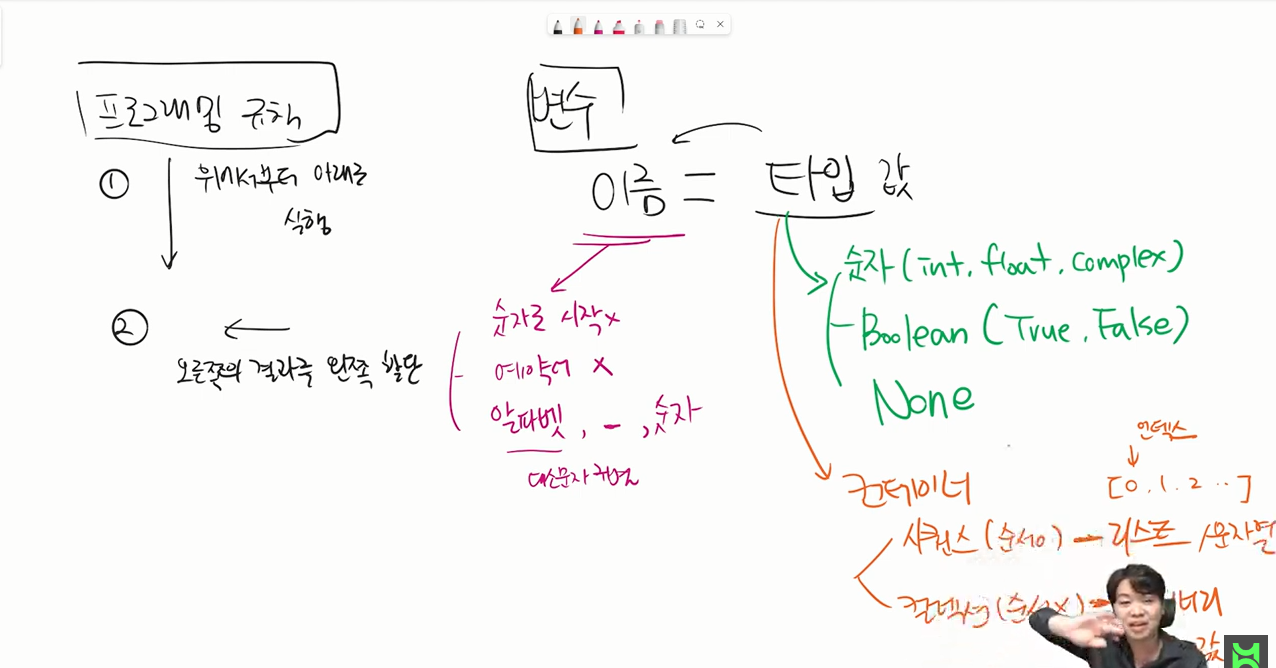 프로그래밍 규칙
① 위에서부터 아래로
실행
② 오른쪽의 결과를 왼쪽 할당
변수
이름 = 타입 값
숫자로 시작 x
예약어 x
알파벳, _, 숫자
대소문자 구변
숫자 (int, float, complex)
Boolean (True, False)
None
컨테이너
인덱스
[0, 1, 2 ..]
시퀀스 (순서o) - 리스트 / 문자열
컬렉션 (순서x) -
너리
값